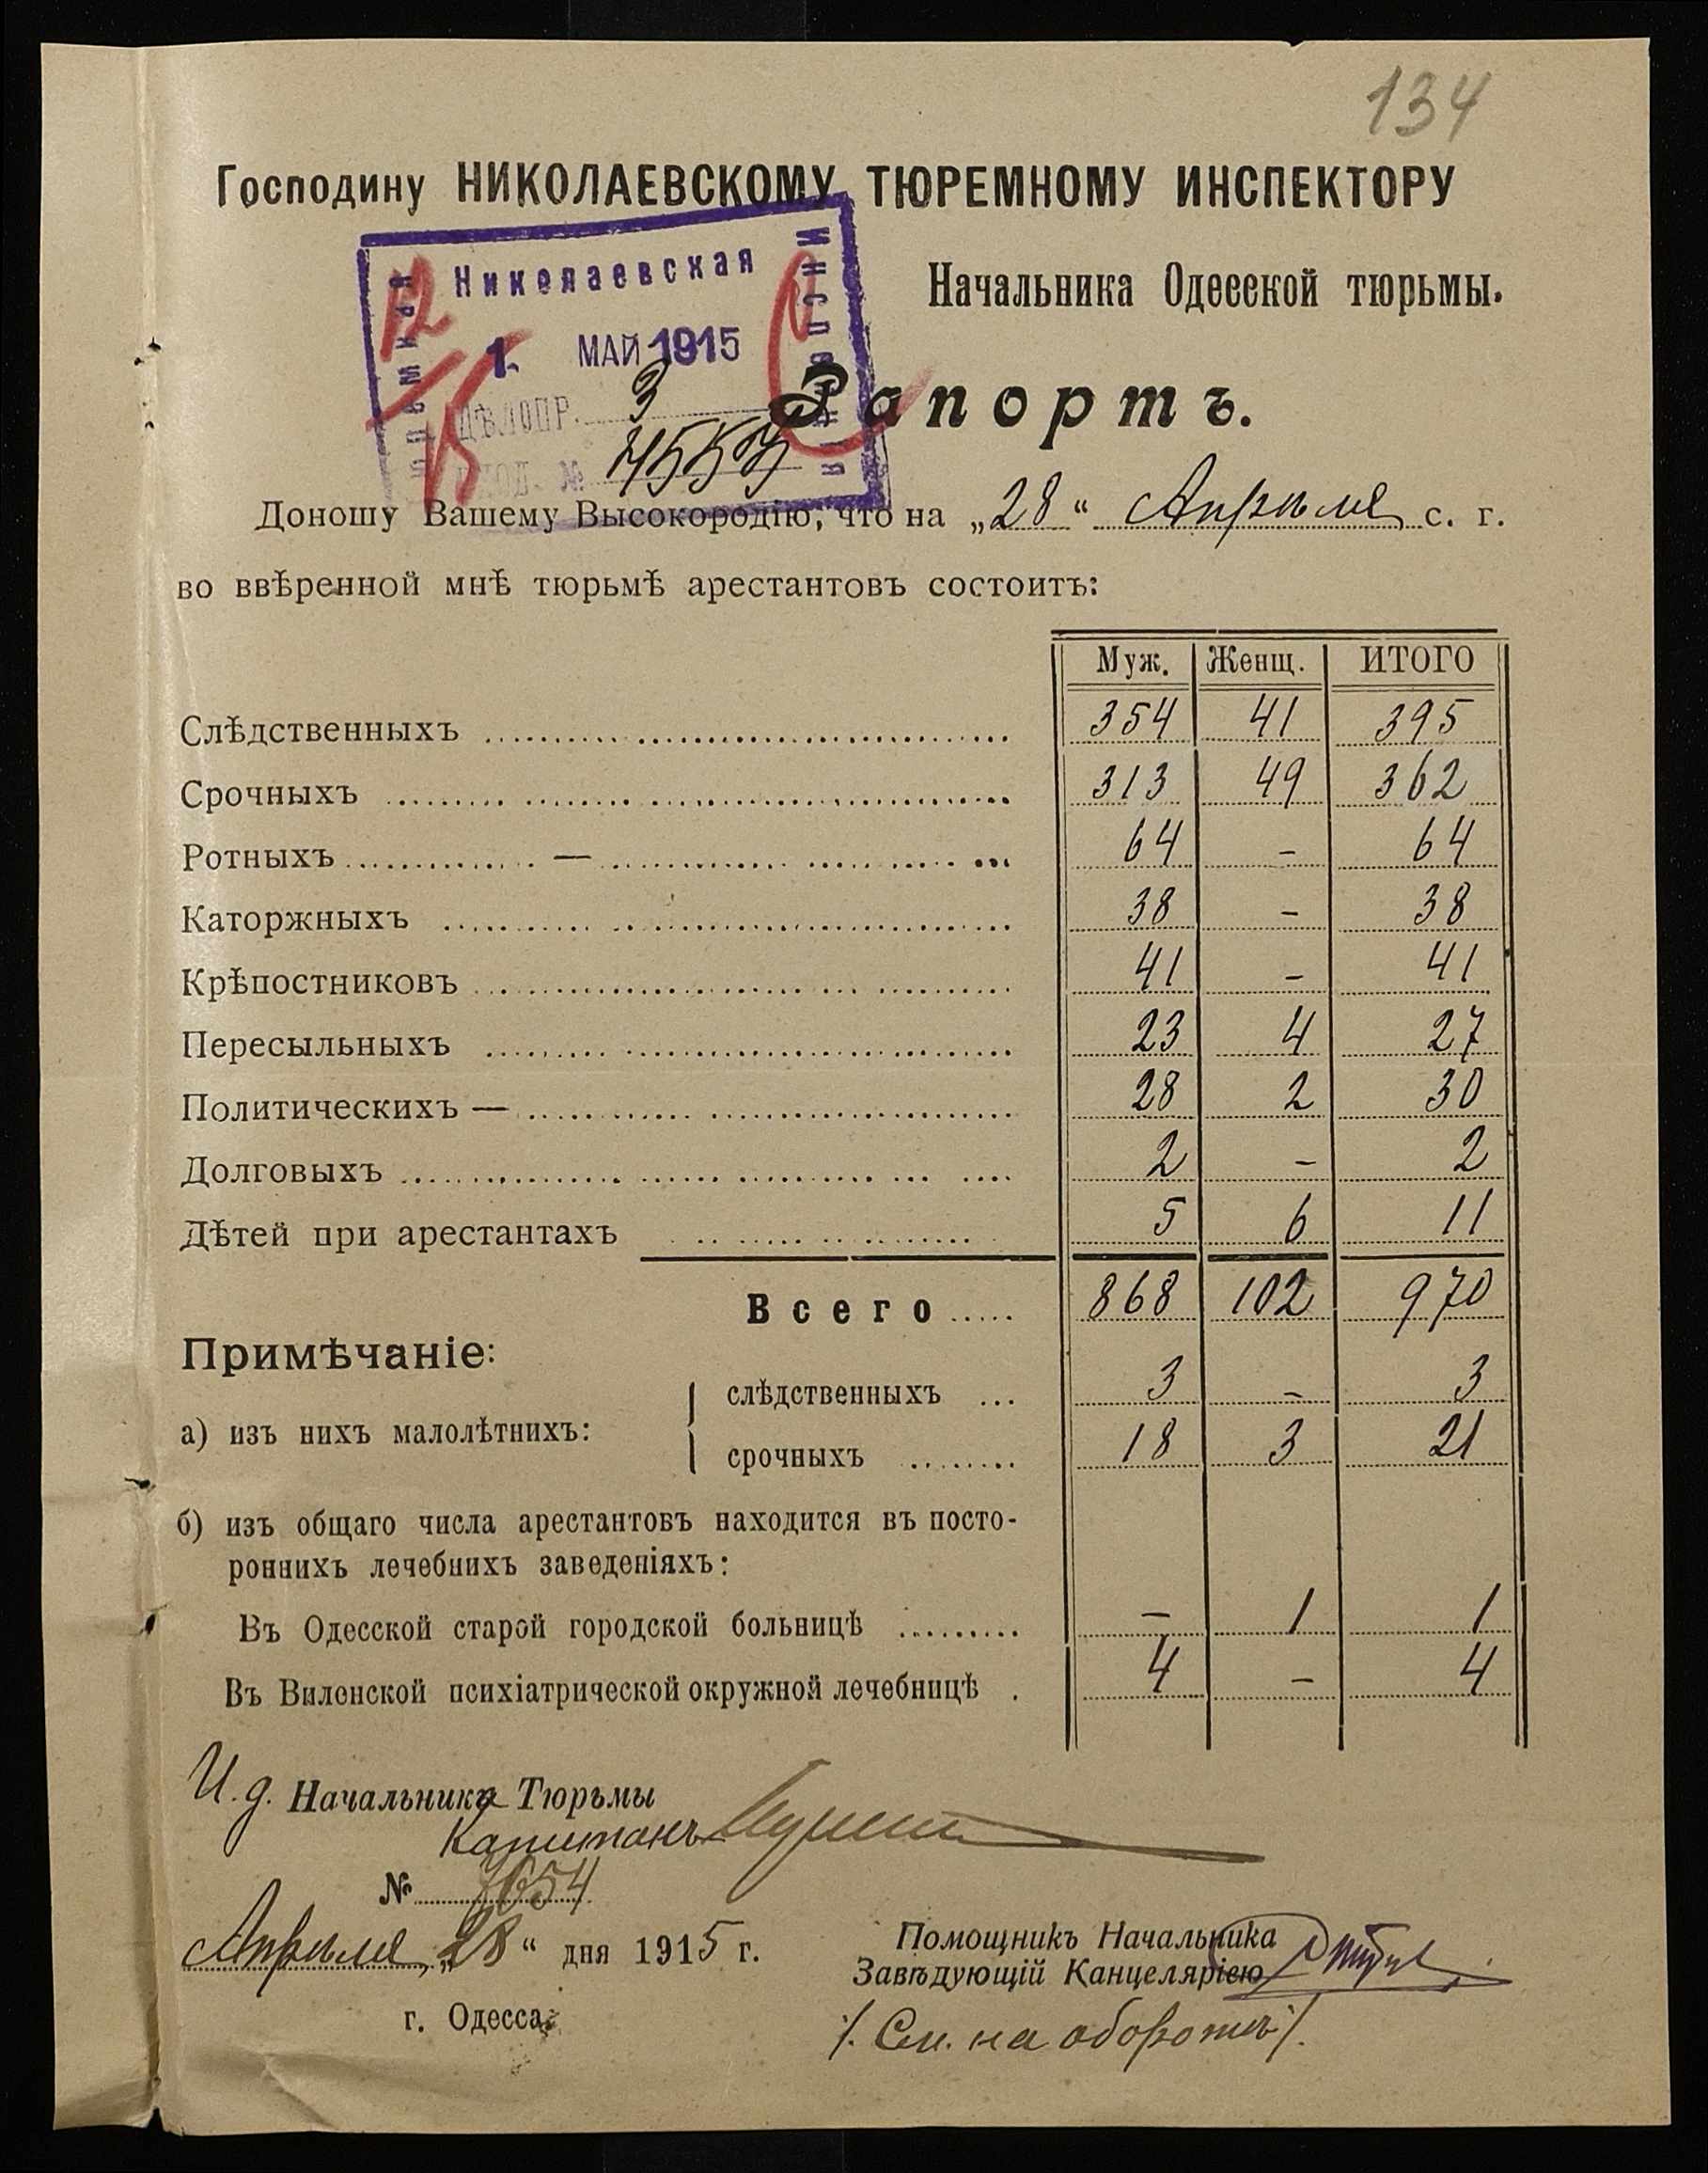 134
Господину НИКОЛАЕВСКОМУ ТЮРЕМНОМУ ИНСПЕКТОРУ
Николаевская
Начальника Одесской тюрьмы.
1 МАЙ 1915
Рапортъ.
ДѢЛОПР. 3
ВХОД. №
Доношу Вашему Высокородію, что на „28“ Апрѣля с. г.
во ввѣренной мнѣ тюрьмѣ арестантовъ состоитъ:
Муж. Женщ. ИТОГО
Слѣдственныхъ 354 41 395
Срочныхъ 313 49 362
Ротныхъ — 64 - 64
Каторжныхъ 38 - 38
Крѣпостниковъ 41 - 41
Пересыльныхъ 23 4 27
Политическихъ — 28 2 30
Долговыхъ 2 - 2
Дѣтей при арестантахъ 5 6 11
Всего 868 102 970
Примѣчаніе:
слѣдственныхъ 3 - 3
а) изъ нихъ малолѣтнихъ:
срочныхъ 18 3 21
б) изъ общаго числа арестантовъ находится въ посто-
роннихъ лечебнихъ заведеніяхъ:
Въ Одесской старой городской больницѣ — 1 1
Въ Виленской психіатрической окружной лечебницѣ 4 - 4
И. д. Начальника Тюрьмы
Капитанъ
№ 7654
Апрѣля „28“ дня 1915 г.
Помощникъ Начальника
Завѣдующій Канцеляріею
г. Одесса.
/. См. на оборотѣ /.